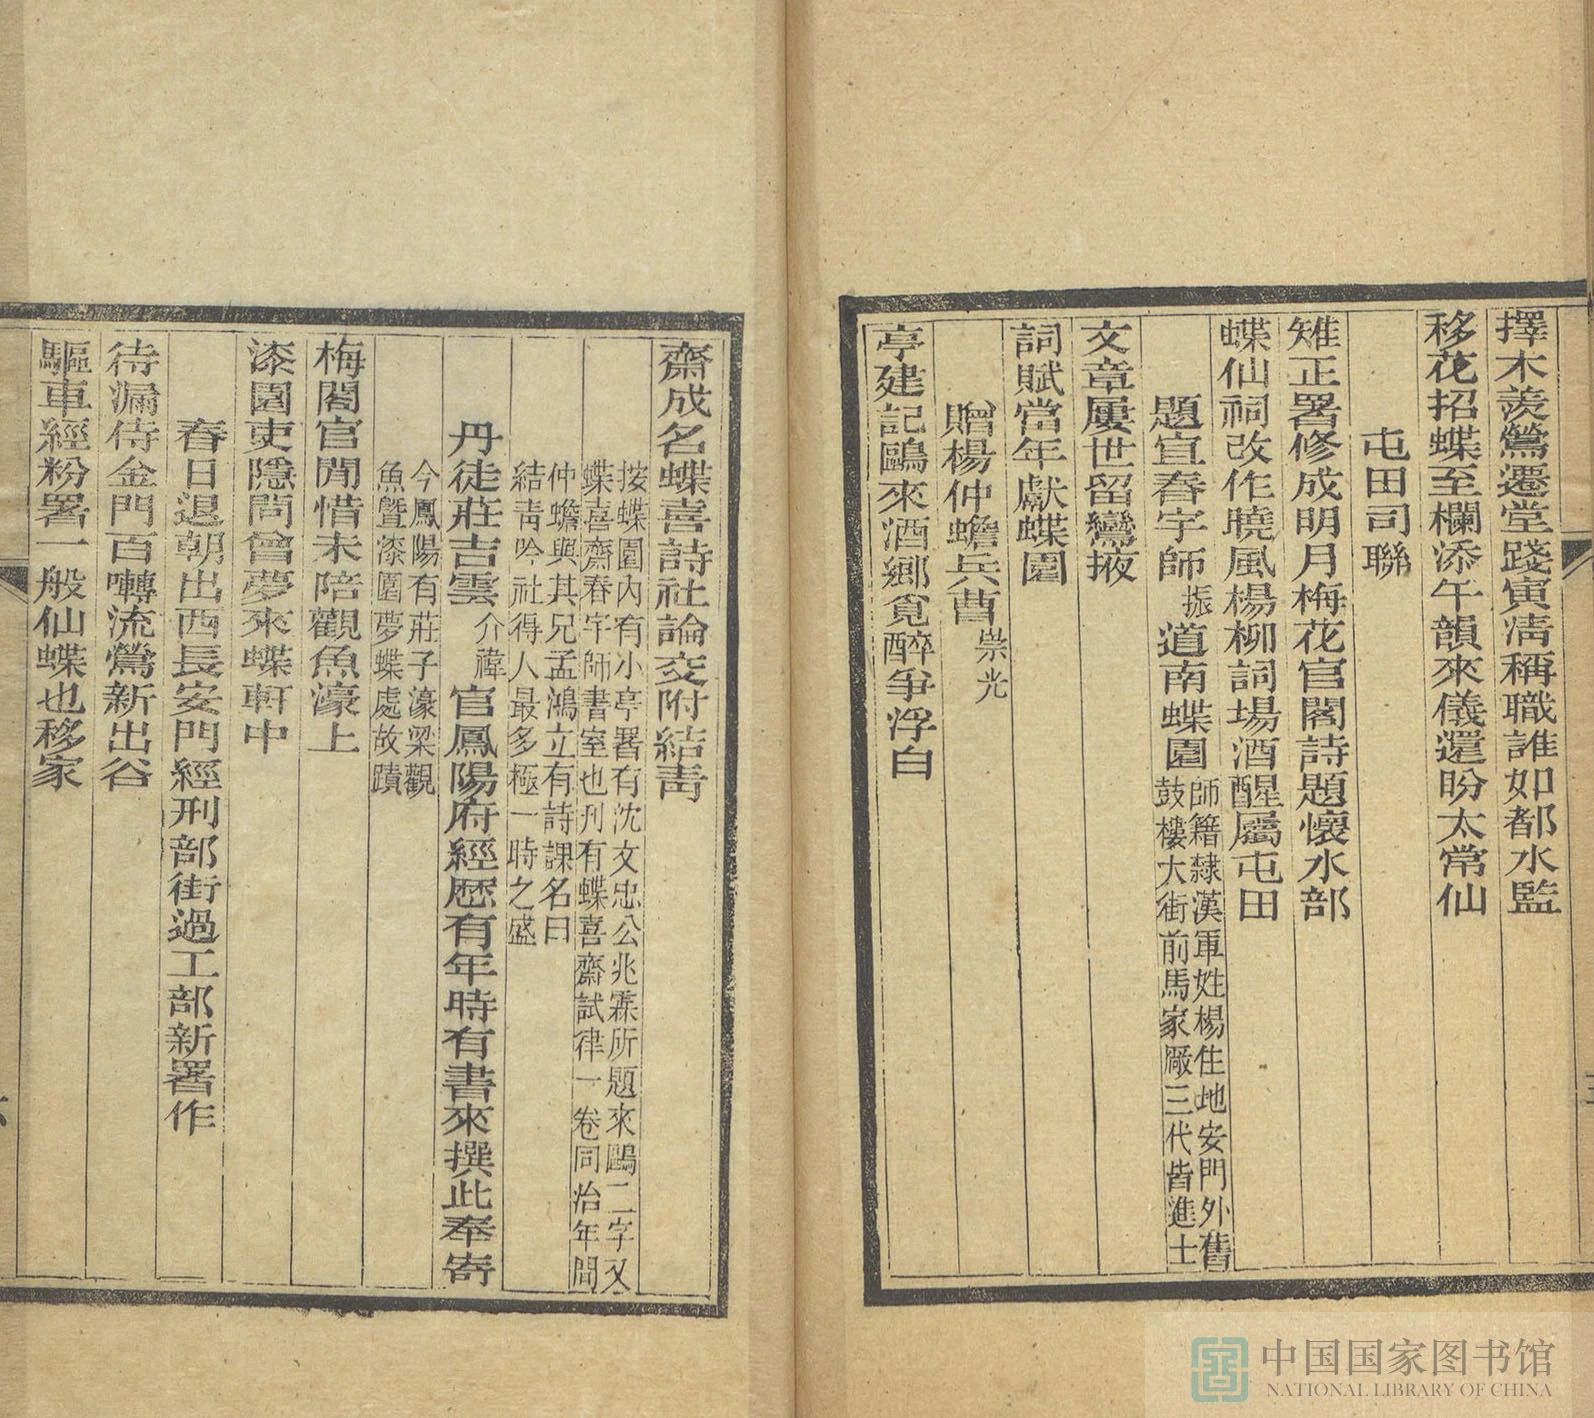 擇木羨鶯遷堂踐寅清稱職誰如都水監
移花招蝶至欄添午韻來儀還盼太常仙
屯田司聯
雉正署修成明月梅花官閣詩題懷水部
蝶仙祠改作曉風楊柳詞場酒醒屬屯田
題宜春宇師振道南蝶園師籍隸漢軍姓楊住地安門外舊
鼓樓大街前馬家廠三代皆進士
文章屢世留鸞掖
詞賦當年獻蝶園
贈楊仲蟾兵曹崇光
亭建記鷗來酒鄉覓醉爭浮白
齋成名蝶喜詩社論交附結青
按蝶園內有小亭署有沈文忠公兆霖所題來鷗二字又
蝶喜齋春宇師書室也刊有蝶喜齋試律一卷同治年間
仲蟾與其兄孟鴻立有詩課名曰
結青吟社得人最多極一時之盛
丹徒莊吉雲介禕官鳳陽府經歷有年時有書來撰此奉寄
今鳳陽有莊子濠梁觀
魚暨漆園夢蝶處故蹟
梅閣官閒惜未陪觀魚濠上
漆園吏隱問曾夢來蝶軒中
春日退朝出西長安門經刑部街過工部新署作
待漏侍金門百囀流鶯新出谷
驅車經粉署一般仙蝶也移家
中国国家图书馆
NATIONAL LIBRARY OF CHINA